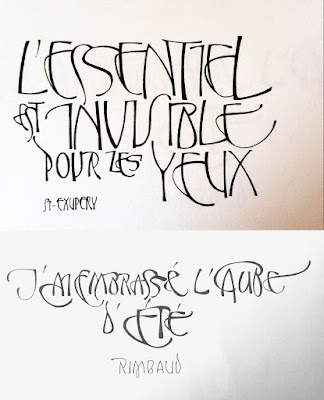 L'ESSENTIEL
EST INVISIBLE
POUR LES YEUX
ST-EXUPERY
J'AI EMBRASSÉ L'AUBE
D'ÉTÉ
RIMBAUD